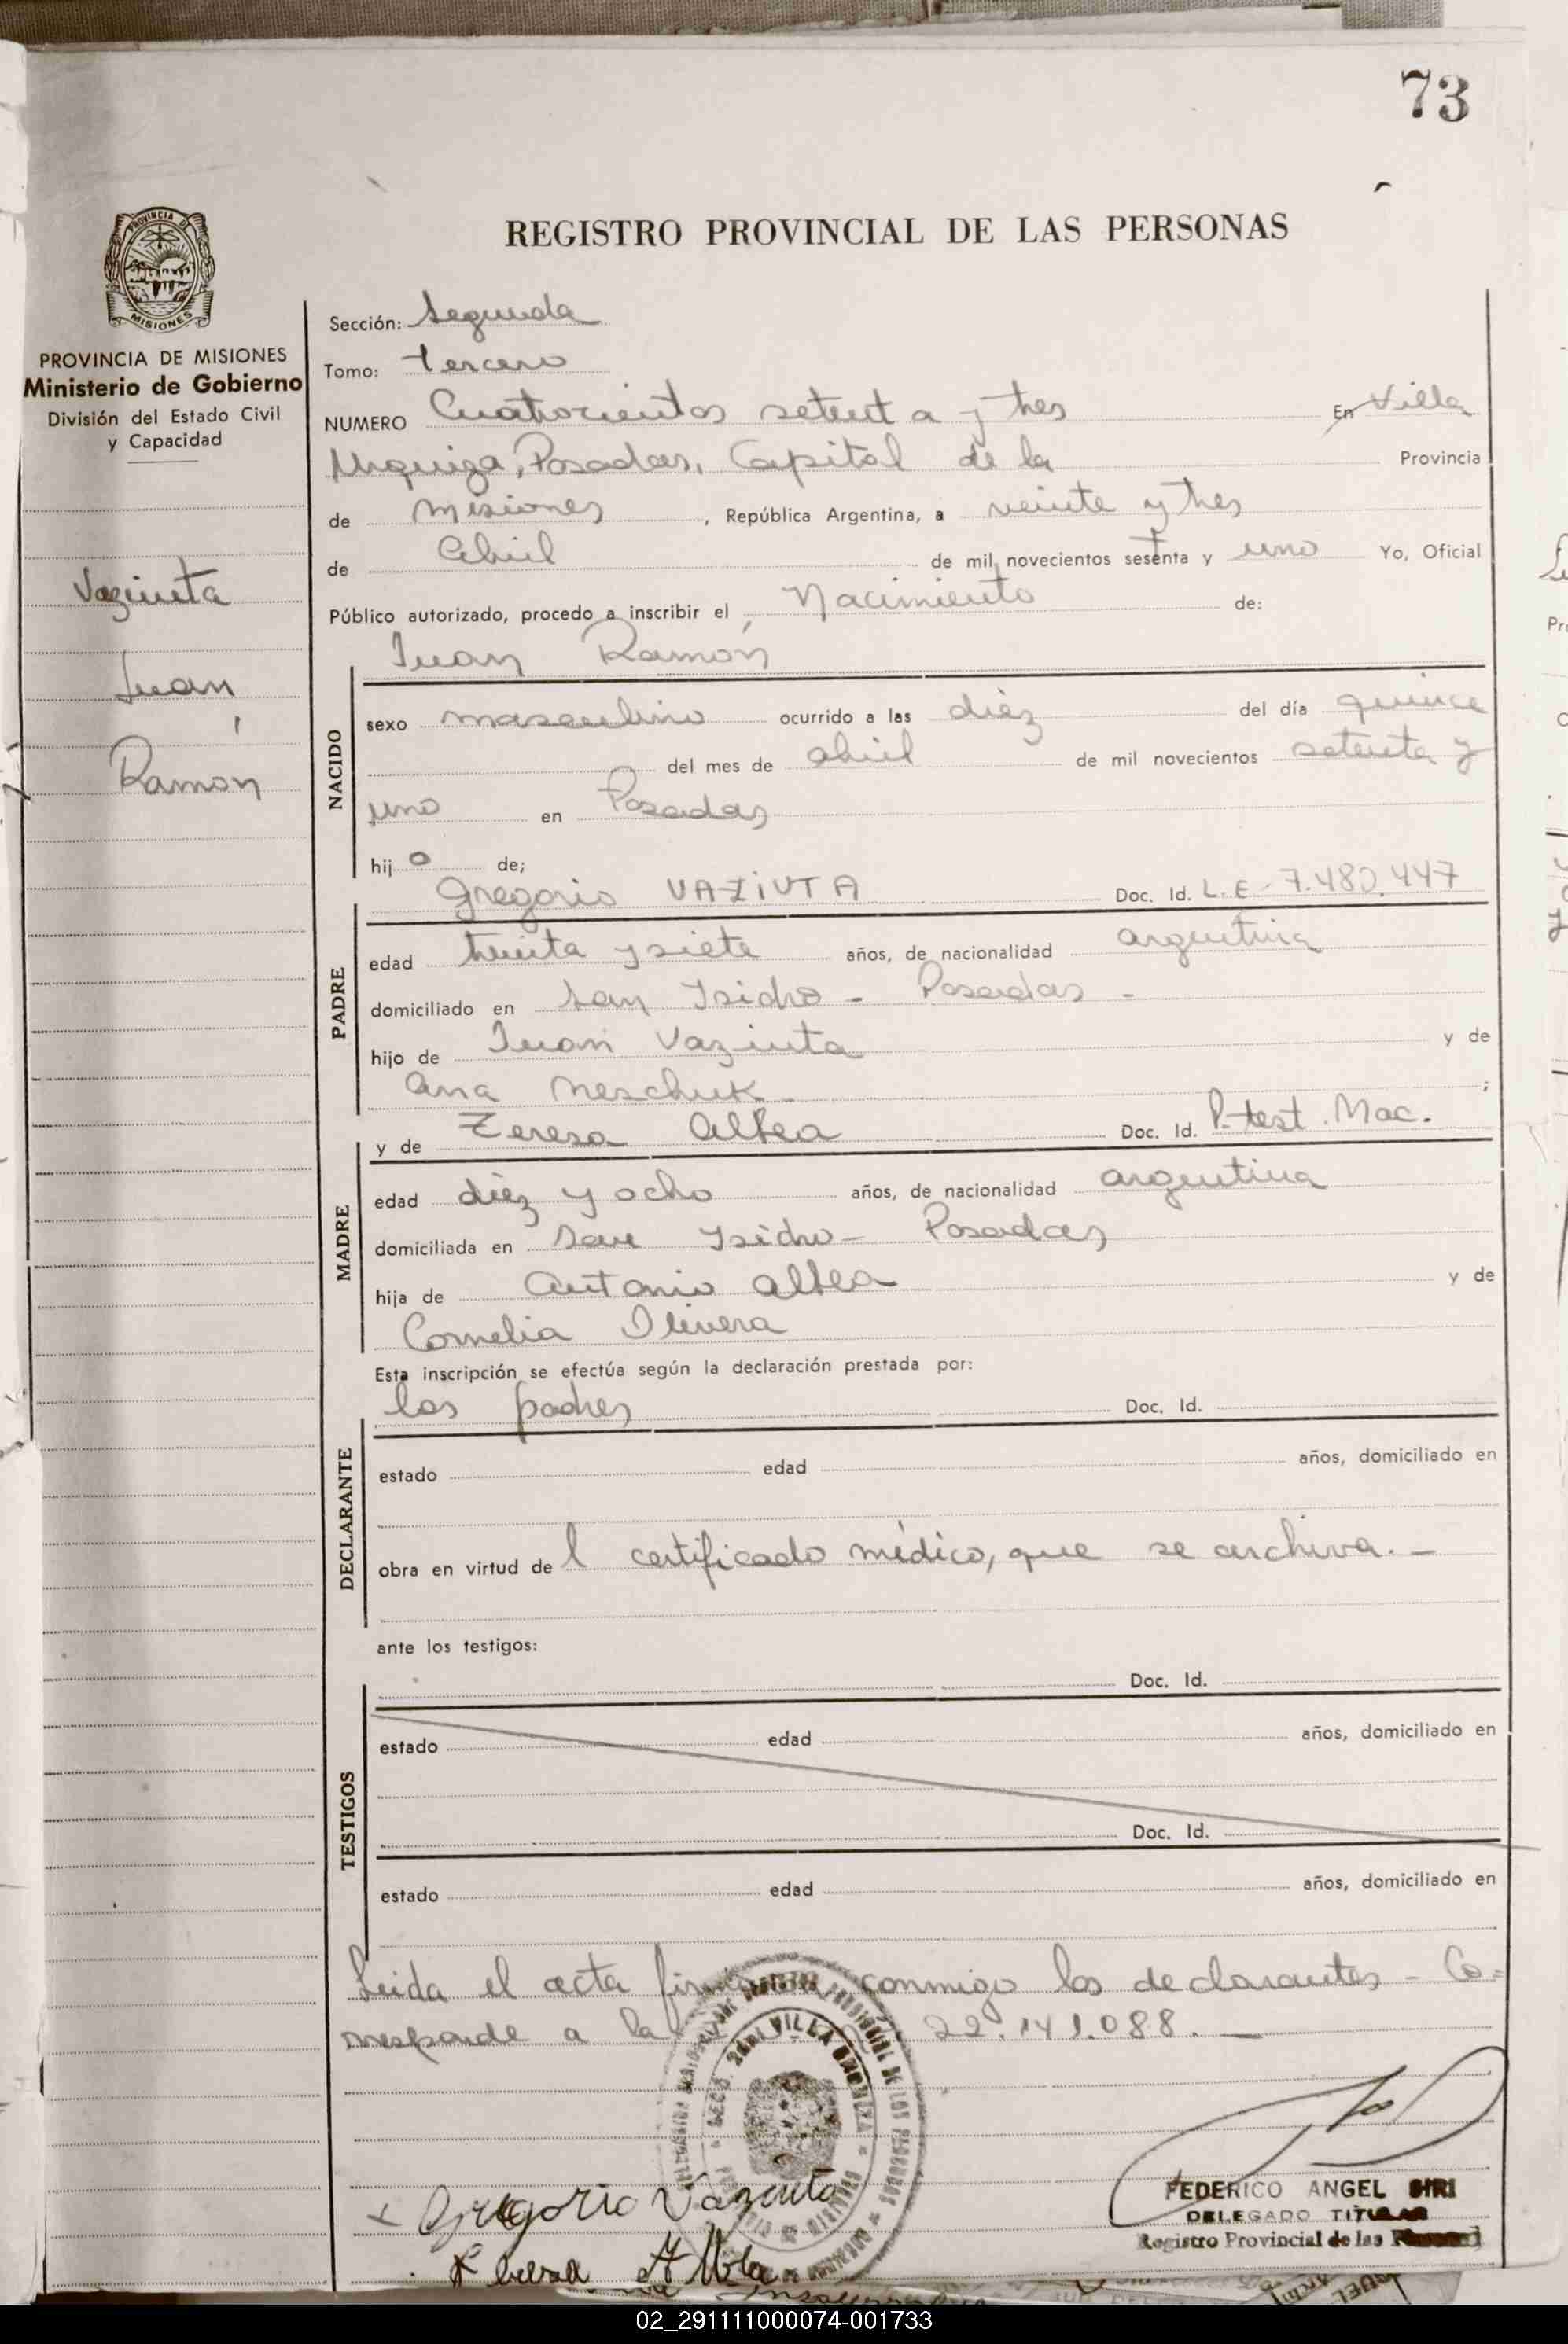 73
REGISTRO PROVINCIAL DE LAS PERSONAS
PROVINCIA DE MISIONES
Ministerio de Gobierno
División del Estado Civil
y Capacidad
Vaziuta
Juan
Ramón
Sección: Segunda
Tomo: tercero
NUMERO Cuatrocientos setenta y tres En Villa
Urquiza, Posadas, Capital de la Provincia
de Misiones, República Argentina, a veinte y tres
de Abril de mil novecientos sesenta y uno Yo, Oficial
Público autorizado, procedo a inscribir el Nacimiento de:
Juan Ramón
NACIDO
sexo masculino ocurrido a las diéz del día quince
del mes de abril de mil novecientos setenta y
uno en Posadas
hijo de;
Gregorio VAZIUTA Doc. Id. L.E. 7.480.447
PADRE
edad treinta y siete años, de nacionalidad argentina
domiciliado en San Isidro - Posadas -
hijo de Juan Vaziuta y de
Ana Meschuk ;
y de Teresa Albea Doc. Id. P. test. Mac.
MADRE
edad diéz y ocho años, de nacionalidad argentina
domiciliada en San Isidro - Posadas
hija de Antonio Albea y de
Cornelia Olivera
Esta inscripción se efectúa según la declaración prestada por:
los padres Doc. Id.
DECLARANTE
estado edad años, domiciliado en
obra en virtud de l certificado médico, que se archiva. -
ante los testigos:
Doc. Id.
TESTIGOS
estado edad años, domiciliado en
Doc. Id.
estado edad años, domiciliado en
Leida el acta conmigo los declarantes - Co=
rresponde a la 22.141.088. -
SECC. 2da. VILLA URQUIZA
Gregorio Vaziuta
FEDERICO ANGEL SIRI
DELEGADO TITULAR
Registro Provincial de las
02_291111000074-001733